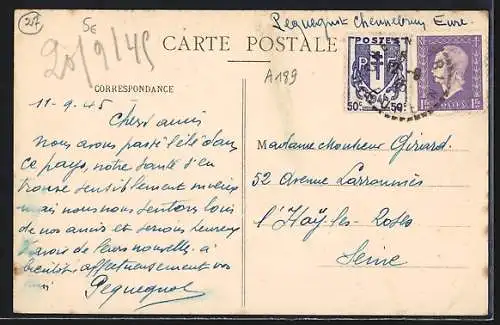 27
5€
20/9/45
Pequegnot Chennebrun Eure
CARTE POSTALE
A199
POSTES
RF
50c 50c
1F 1F
CORRESPONDANCE
11-9-45
Chers amis
nous avons passé l'été dans
ce pays, notre santé s'en
trouve sensiblement mieux
mais nous nous sentons loin
de nos amis et serions heureux
d'avoir de leurs nouvelles. à
bientôt affectueusement vos
amis
Pequegnot
Madame Monsieur Girard
52 Avenue Larroumès
l'Haÿ-les-Roses
Seine